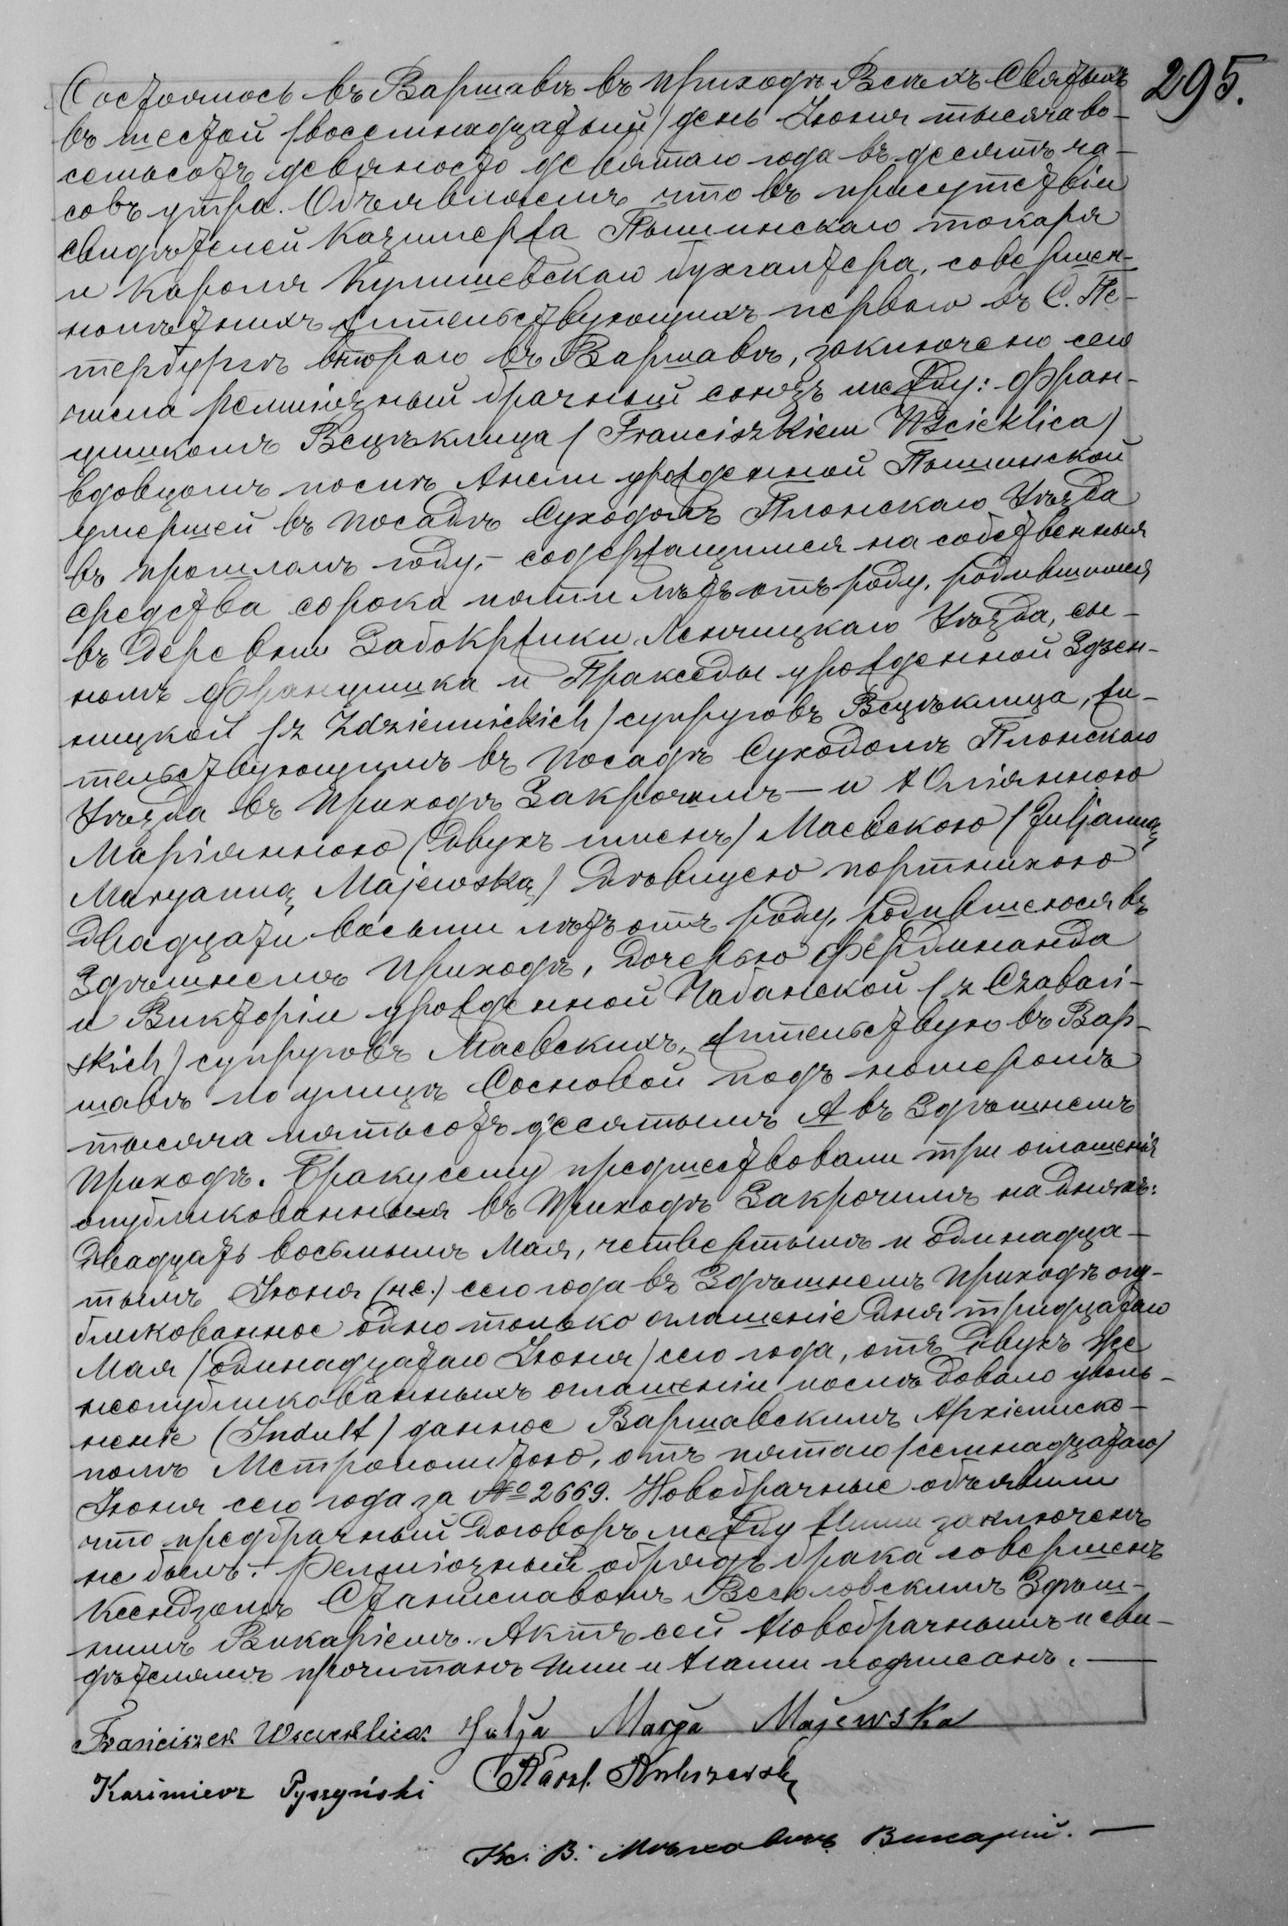 295.
Состоялось въ Варшавѣ въ приходѣ Всѣхъ Святыхъ
въ шестой /восемнадцатый/ день Іюня тысяча во-
семьсотъ девяносто девятаго года въ десять ча-
совъ утра. Объявляемъ что въ присутствіи
свидѣтелей Казимержа Пышинскаго токаря
и Кароля Кулишевскаго бухгалтера, совершен-
нолѣтнихъ жительствующихъ перваго въ С. Пе-
тербургѣ втораго въ Варшавѣ, заключено сего
числа религіозный брачный союзъ между: Фран-
цишкомъ Всцѣклица / Franciszkiem Wścieklica /
вдовцомъ послѣ Анели урожденной Пышинской
умершей въ посадѣ Суходолъ Плонскаго Уѣзда
въ прошломъ году, – содержащимся на собственныя
средства сорока пяти лѣтъ отъ роду, родившимся
въ деревни Забокржики Ленчицкаго Уѣзда, сы-
номъ Францишка и Пракседы урожденной Здзен-
ницкой / z Zdziennickich / супруговъ Всцѣклица, жи-
тельствующимъ въ посадѣ Суходолъ Плонскаго
Уѣзда въ приходѣ Закрочимъ — и Юліянною
Маріянною (двухъ именъ) Маевскою / Juljanną
Maryanną Majewską / дѣвицею портнихою
двадцати восьми лѣтъ отъ роду, родившеюся въ
Здѣшнемъ приходѣ, дочерью Фердинанда
и Викторіи урожденной Чабанской / z Czabań-
skich / супруговъ Маевскихъ, жительствую въ Вар-
шавѣ по улицѣ Сосновой подъ номеромъ
тысяча пятьсотъ десятымъ А въ Здѣшнемъ
приходѣ. Браку сему предшествовали три оглашенія
опубликованныя въ приходѣ Закрочимъ на дняхъ:
двадцать восьмымъ Мая, четвертымъ и одинадца-
тымъ Іюня (нс.) сего года въ Здѣшнемъ приходѣ опу-
бликованное одно только оглашеніе дня тридцатаго
Мая / одинадцатаго Іюня / сего года, отъ двухъ же
неопубликованныхъ оглашеніи послѣдовало уволь-
неніе (Indult) данное Варшавскимъ Архіеписко-
помъ Метрополитою, отъ пятаго /семнадцатаго/
Іюня сего года за № 2669. Новобрачные объявили
что предбрачный договоръ между ними заключенъ
не былъ. Религіозный обрядъ брака совершенъ
Ксендзомъ Станиславомъ Весоловскимъ Здѣш-
нимъ Викаріемъ. Актъ сей Новобрачнымъ и сви-
дѣтелямъ прочитанъ ими и Нами подписанъ. —
Franciszek Wścieklica Julja Marja Majewska
Kazimierz Pyszyński Karol Kuliszewski
Кс. В. Викарій. —